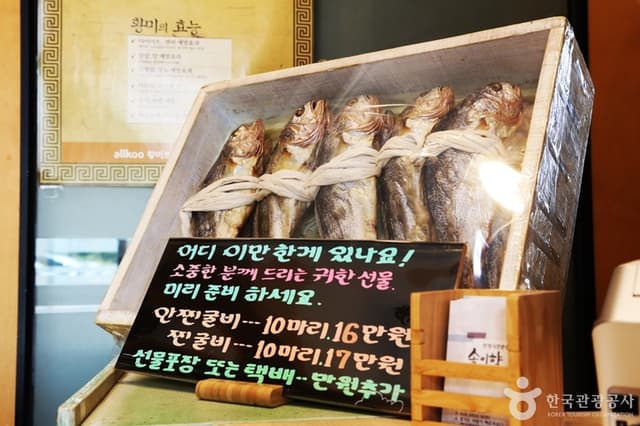 황미의 효능
allkoo 황미
어디 이만한게 있나요!
소중한 분께 드리는 귀한 선물.
미리 준비 하세요.
안찐굴비---10마리.16만원
찐굴비---10마리.17만원
선물포장 또는택배--만원추가
송이향
한국관광공사
KOREA TOURISM ORGANIZATION